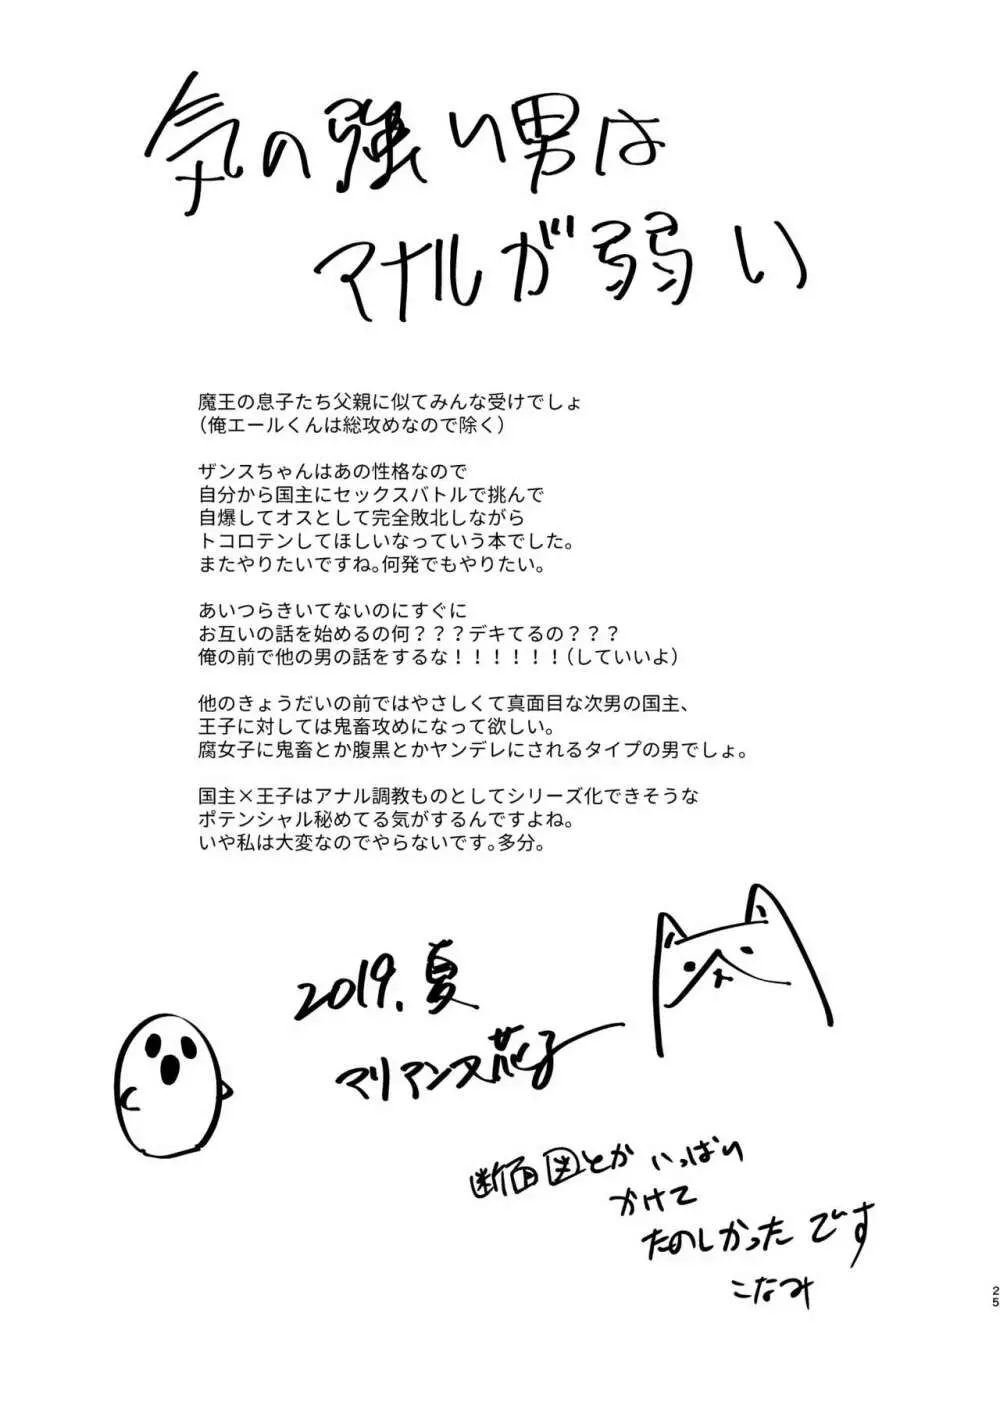 気の強い男は
マナルが弱い
魔王の息子たち父親に似てみんな受けでしょ
（俺エールくんは総攻めなので除く）
ザンスちゃんはあの性格なので
自分から国主にセックスバトルで挑んで
自爆してオスとして完全敗北しながら
トコロテンしてほしいなっていう本でした。
またやりたいですね。何発でもやりたい。
あいつらきいてないのにすぐに
お互いの話を始めるの何？？？デキてるの？？？
俺の前で他の男の話をするな！！！！！！（していいよ）
他のきょうだいの前ではやさしくて真面目な次男の国主、
王子に対しては鬼畜攻めになって欲しい。
腐女子に鬼畜とか腹黒とかヤンデレにされるタイプの男でしょ。
国主×王子はアナル調教ものとしてシリーズ化できそうな
ポテンシャル秘めてる気がするんですよね。
いや私は大変なのでやらないです。多分。
2019.夏
マリアンヌ花子
断面図とかいっぱい
かけて
たのしかったです
こなつみ
25